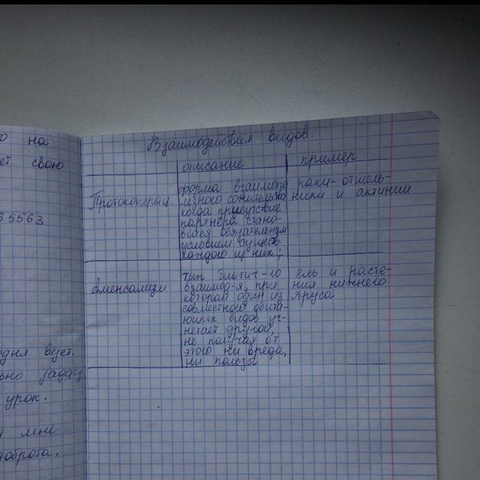 о на
ет свою
55563
дня везет.
льно задачу
урок.
и мне
доброта.
Взаимодействия видов.
описание
пример
Протокоопер
форма взаимовы
лезного сожительс
когда присутствие
партнера стано-
вится обязательным
условием сущиов
каждого из них;
раки-отшель-
ники и актинии
Аменсализм
тип биотич-го
взаимод-я, при
котором один из
совместно обита-
ющих видов уг-
нетает другой,
не получая от
этого ни вреда,
ни пользы
ель и расте-
ния нижнего
яруса